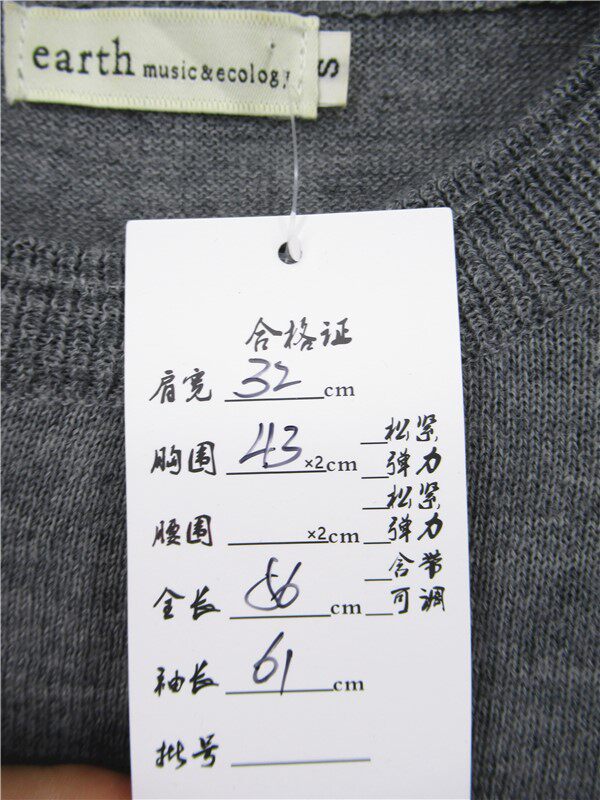 earth music&ecology
S
合格证
肩宽 32 cm
胸围 43 ×2cm 松紧 弹力
腰围 ×2cm 松紧 弹力
全长 56 cm 含带 可调
袖长 61 cm
批号